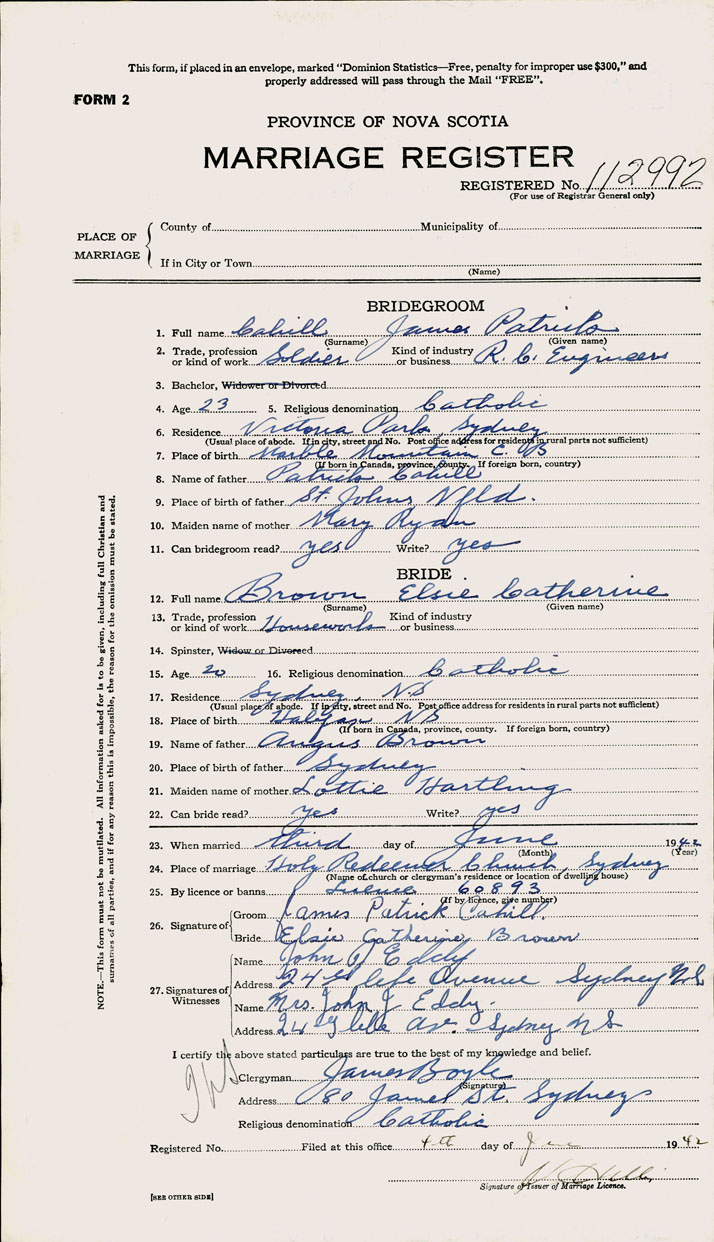 This form, if placed in an envelope, marked “Dominion Statistics—Free, penalty for improper use $300,” and
properly addressed will pass through the Mail “FREE”.
FORM 2
PROVINCE OF NOVA SCOTIA
MARRIAGE REGISTER
REGISTERED No. 112992
(For use of Registrar General only)
PLACE OF MARRIAGE
County of Municipality of
If in City or Town
(Name)
BRIDEGROOM
1. Full name Cahill James Patrick
(Surname) (Given name)
2. Trade, profession or kind of work Soldier Kind of industry or business R. C. Engineers
3. Bachelor, Widower or Divorced
4. Age 23 5. Religious denomination Catholic
6. Residence Victoria Park, Sydney
(Usual place of abode. If in city, street and No. Post office address for residents in rural parts not sufficient)
7. Place of birth Marble Mountain C. B
(If born in Canada, province, county. If foreign born, country)
8. Name of father Patrick Cahill
9. Place of birth of father St. Johns Nfld.
10. Maiden name of mother Mary Ryan
11. Can bridegroom read? yes Write? yes
BRIDE
12. Full name Brown Elsie Catherine
(Surname) (Given name)
13. Trade, profession or kind of work Housework Kind of industry or business
14. Spinster, Widow or Divorced
15. Age 20 16. Religious denomination Catholic
17. Residence Sydney, N.S
(Usual place of abode. If in city, street and No. Post office address for residents in rural parts not sufficient)
18. Place of birth Halifax NS
(If born in Canada, province, county. If foreign born, country)
19. Name of father Angus Brown
20. Place of birth of father Sydney
21. Maiden name of mother Lottie Hartling
22. Can bride read? yes Write? yes
23. When married third day of June 1942
(Month) (Year)
24. Place of marriage Holy Redeemer Church, Sydney
(Name of church or clergyman's residence or location of dwelling house)
25. By licence or banns Licence 60893
(If by licence, give number)
26. Signature of
Groom James Patrick Cahill.
Bride Elsie Catherine Brown
27. Signatures of Witnesses
Name John J Eddy
Address 24 Glebe Avenue Sydney N.S
Name Mrs. John J Eddy.
Address 24 Glebe Ave. Sydney N S
I certify the above stated particulars are true to the best of my knowledge and belief.
Clergyman James Boyle
(Signature)
Address 80 James St. Sydney
Religious denomination Catholic
Registered No. Filed at this office 4th day of June 1942
Signature of Issuer of Marriage Licence.
[SEE OTHER SIDE]
NOTE.—This form must not be mutilated. All information asked for is to be given, including full Christian and
surnames of all parties, and if for any reason this is impossible, the reason for the omission must be stated.